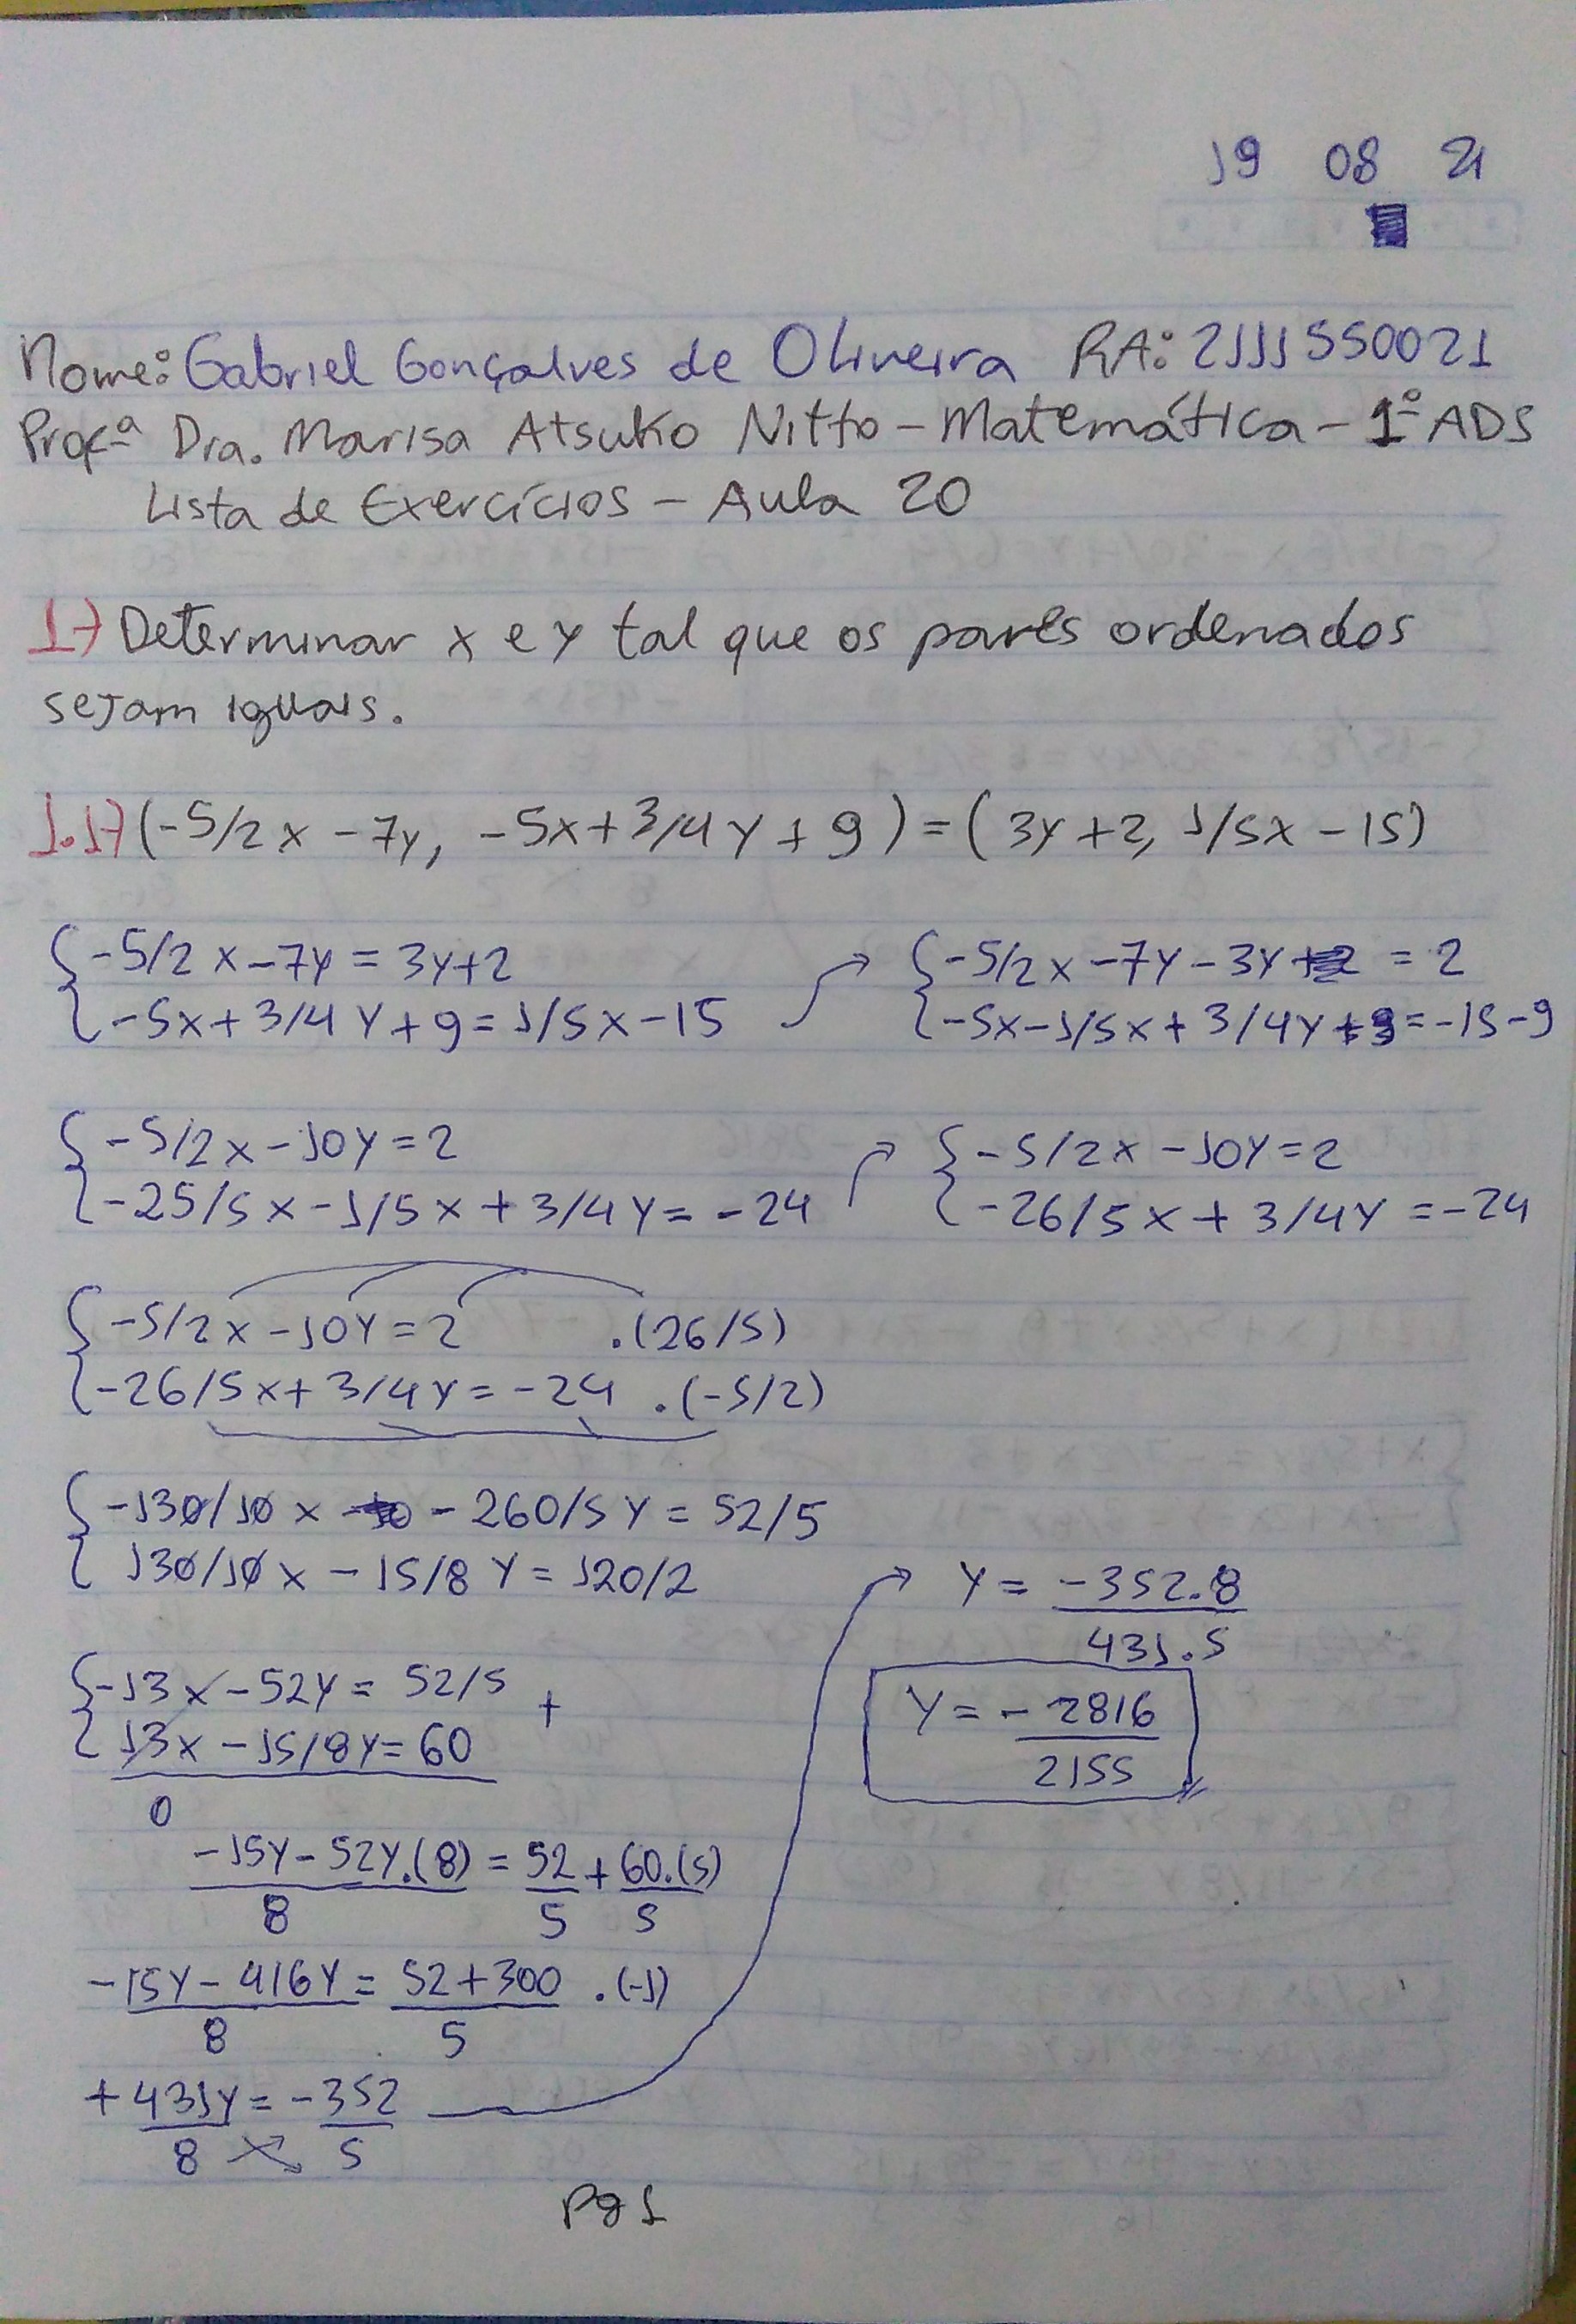 19 08 21
Nome: Gabriel Gonçalves de Oliveira RA: 2111550021
Profª Dra. Marisa Atsuko Nitto - Matemática - 1º ADS
Lista de Exercícios - Aula 20
1-) Determinar x e y tal que os pares ordenados
sejam iguais.
1.1-) (-5/2x - 7y, -5x + 3/4y + 9) = (3y + 2, 1/5x - 15)
{-5/2x - 7y = 3y + 2
{-5x + 3/4y + 9 = 1/5x - 15
{-5/2x - 7y - 3y = 2
{-5x - 1/5x + 3/4y = -15 - 9
{-5/2x - 10y = 2
{-25/5x - 1/5x + 3/4y = -24
{-5/2x - 10y = 2
{-26/5x + 3/4y = -24
{-5/2x - 10y = 2 .(26/5)
{-26/5x + 3/4y = -24 .(-5/2)
{-130/10x - 260/5y = 52/5
{130/10x - 15/8y = 120/2
{-13x - 52y = 52/5 +
{13x - 15/8y = 60
0
-15y - 52y.(8) = 52 + 60.(5)
8 5 5
-15y - 416y = 52 + 300 .(-1)
8 5
+431y = -352
8 5
y = -352.8
431.5
y = -2816
2155
Pg 1